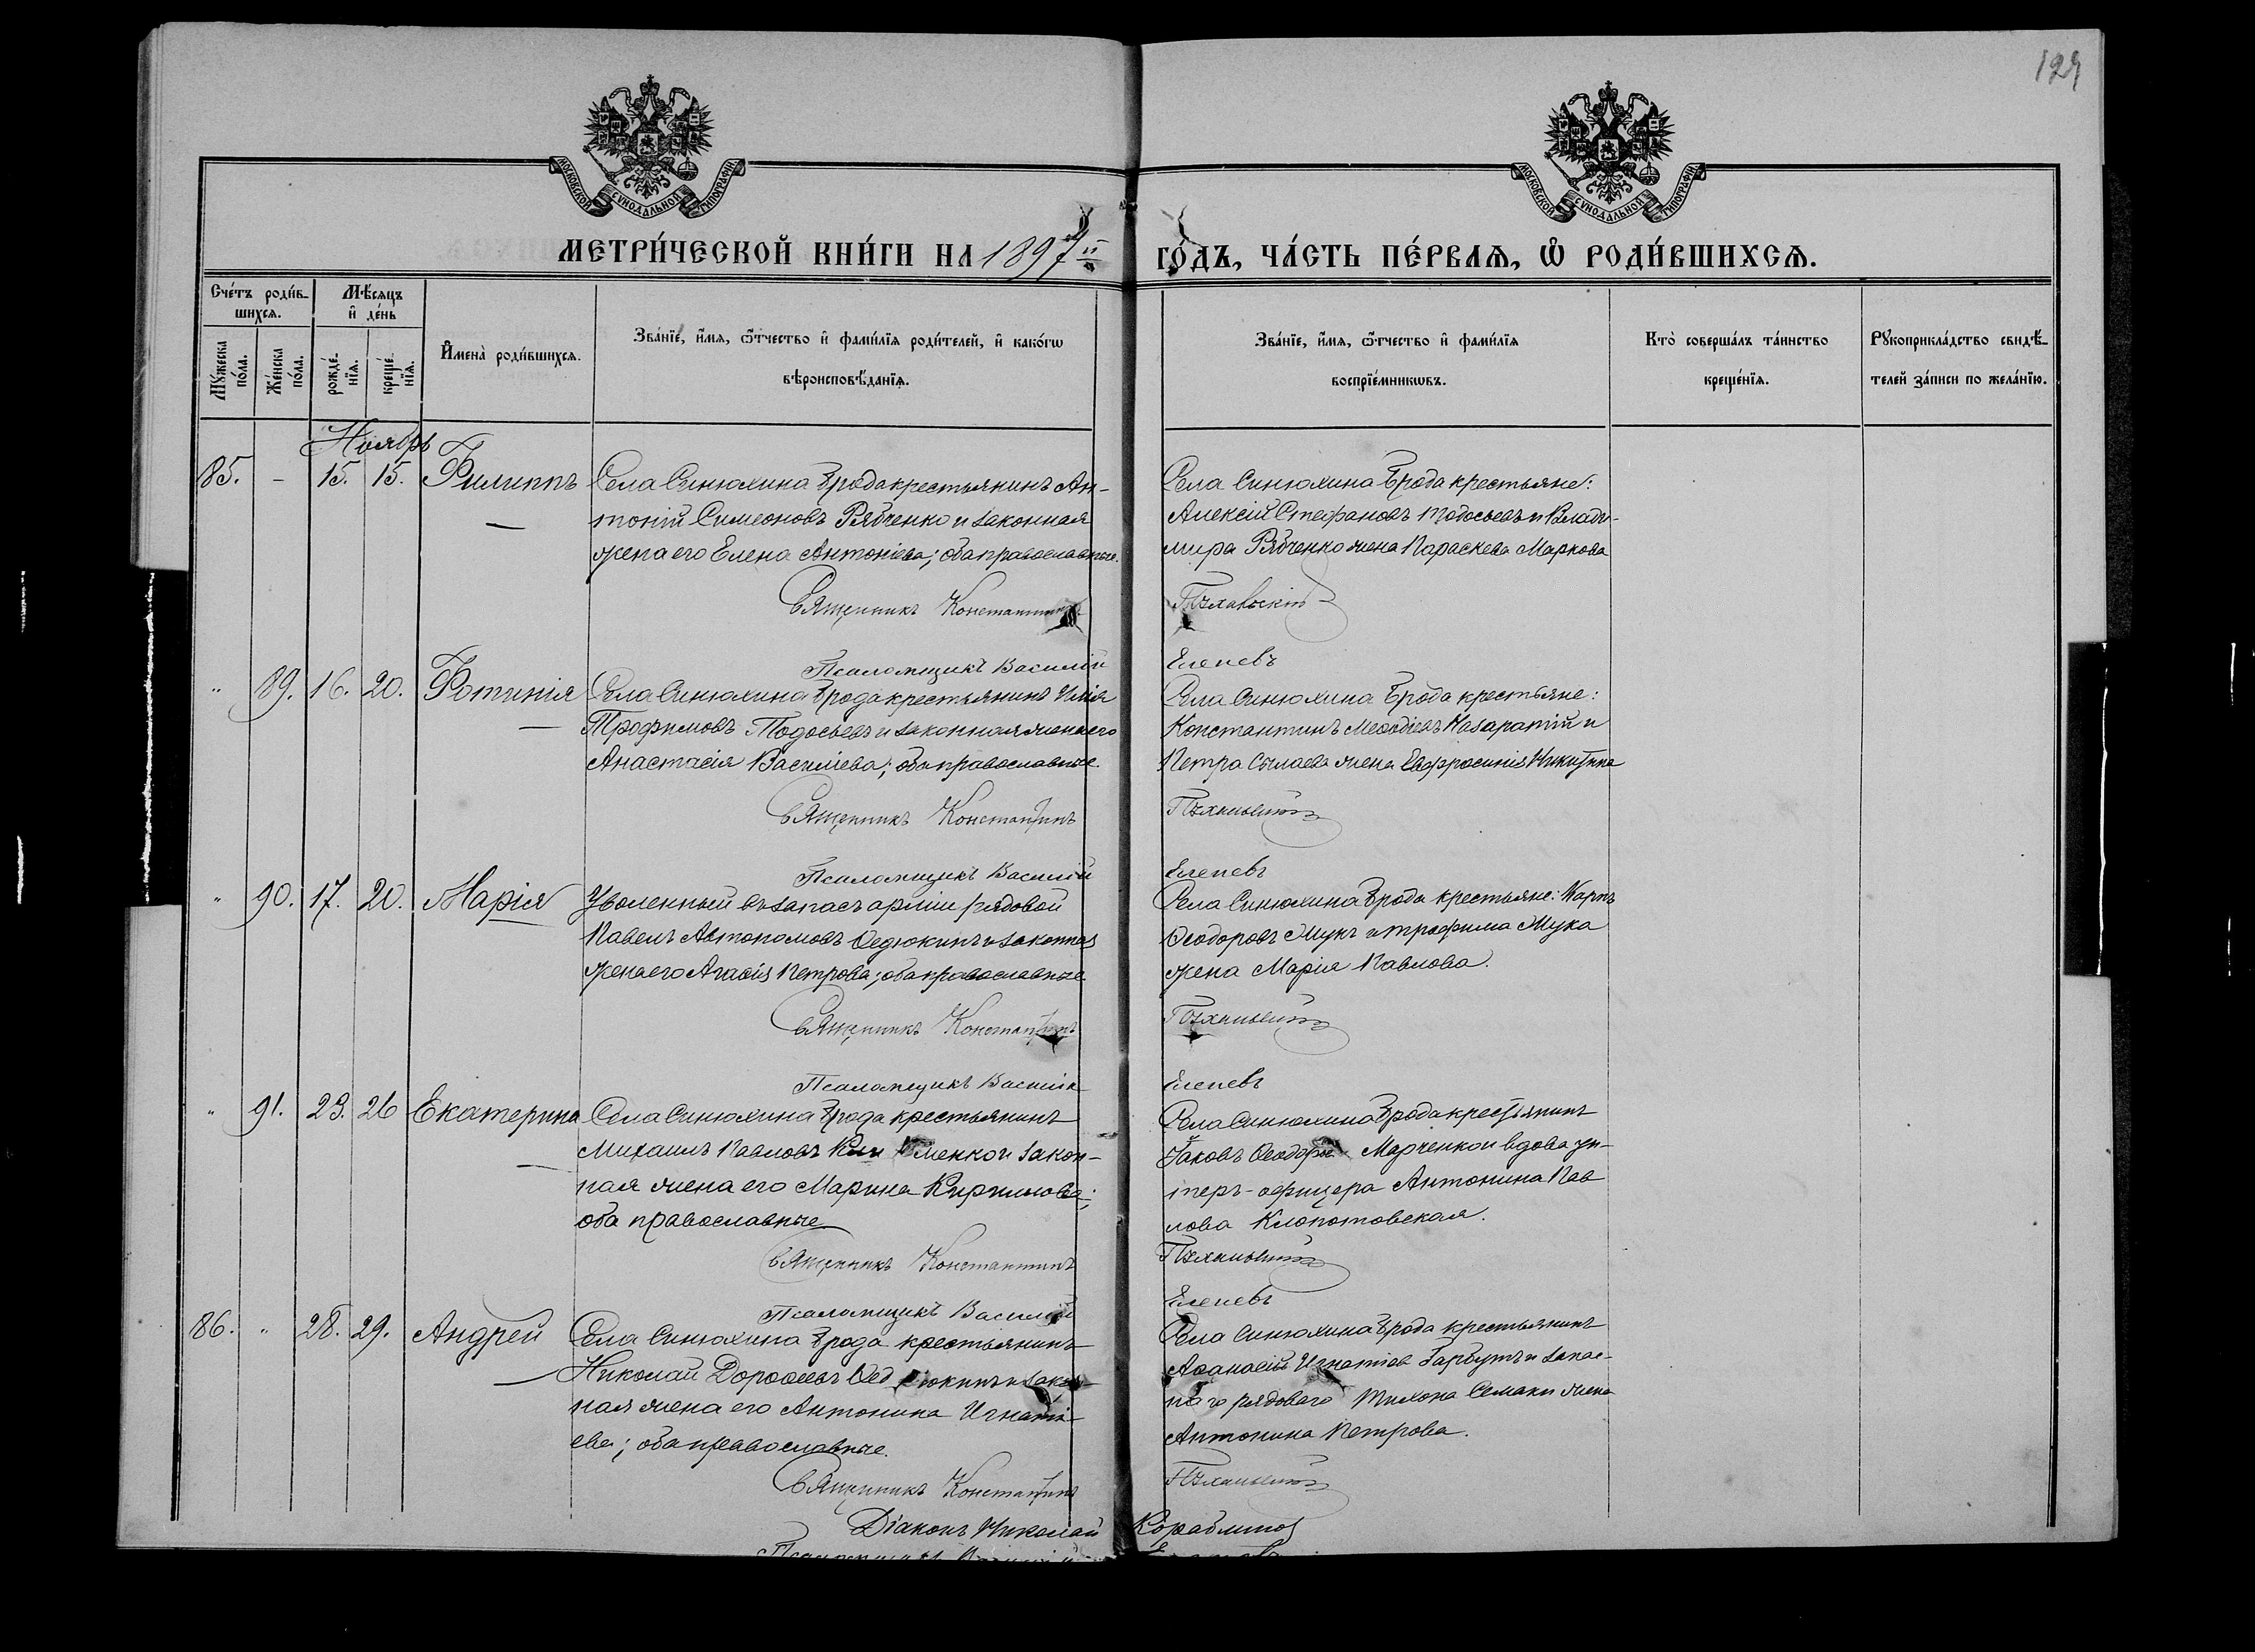 129
МОСКОВСКОЙ СѴНОДАЛЬНОЙ ТИПОГРАФІИ
МОСКОВСКОЙ СѴНОДАЛЬНОЙ ТИПОГРАФІИ
МЕТРИ́ЧЕСКОЙ КНИ́ГИ НА 1897й ГО́ДЪ, ЧА́СТЬ ПЕ́РВАѦ, Ѽ РОДИ́ВШИХСѦ.
Сче́тъ роди́в-
шихсѧ.
Мѣ́сѧцъ
и҆ де́нь
Мꙋ́жеска по́ла.
Же́нска по́ла.
рожде́нїѧ.
креще́нїѧ.
И҆мена̀ роди́вшихсѧ.
Зва́нїе, и҆́мѧ, ѻ҆́тчество и҆ фами́лїѧ роди́телей, и҆ како́гѡ
вѣроисповѣ́данїѧ.
Зва́нїе, и҆́мѧ, ѻ҆́тчество и҆ фами́лїѧ
воспрїе́мникѡвъ.
Кто̀ соверша́лъ та́инство
креще́нїѧ.
Рꙋкоприкла́дство свидѣ́-
телей за́писи по жела́нїю.
Ноябрь
85. - 15. 15. Филиппъ
Села Синюхина Брода крестьянинъ Ан-
тоній Симеоновъ Рябченко и законная
жена его Елена Антоніева; оба православные.
Села Синюхина Брода крестьяне:
Алексій Стефановъ Тодосьевъ и Влади-
мира Рябченко жена Параскева Маркова
Священникъ Константинъ
Псаломщикъ Василій Еленевъ
" 89. 16. 20. Фотинія
Села Синюхина Брода крестьянинъ Илія
Трофимовъ Тодосьевъ и законная жена его
Анастасія Василіева; оба православные.
Села Синюхина Брода крестьяне:
Константинъ Меѳодіевъ и
Петра жена Евфросинія Никитина
Священникъ Константинъ
Псаломщикъ Василій Еленевъ
" 90. 17. 20. Марія
Уволенный въ запасъ арміи рядовой
Павелъ Автономовъ Ѳедюкинъ и законная
жена его Агаѳія Петрова; оба православные
Села Синюхина Брода крестьяне: Карпъ
Ѳеодоровъ Мукъ и Трофима Мука
жена Марія Павлова.
Священникъ Константинъ
Псаломщикъ Василій Еленевъ
" 91. 23. 26 Екатерина
Села Синюхина Брода крестьянинъ
Михаилъ Павловъ и закон-
ная жена его Марина Кириллова;
оба православные
Села Синюхина Брода крестьянинъ
Іаковъ Ѳеодоровъ Марченко и вдова ун-
теръ-офицера Антонина Пав
лова Клопотовская.
Священникъ Константинъ
Псаломщикъ Василій Еленевъ
86. " 28. 29. Андрей
Села Синюхина Брода крестьянинъ
Николай Дороѳеевъ Ѳедюкинъ и закон-
ная жена его Антонина Игнаті-
ева; оба православные.
Села Синюхина Брода крестьянинъ
Аѳанасій Игнатіевъ Гарбузъ и запас-
наго рядоваго Тихона Семаки жена
Антонина Петрова.
Священникъ Константинъ
Діаконъ Николай Кораблиновъ
Псаломщикъ Василій Еленевъ